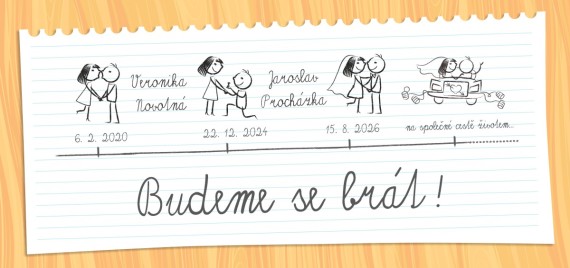 Veronika
Novotná
Jaroslav
Procházka
6. 2. 2020
22. 12. 2024
15. 8. 2026
na společné cestě životem...
Budeme se brát!